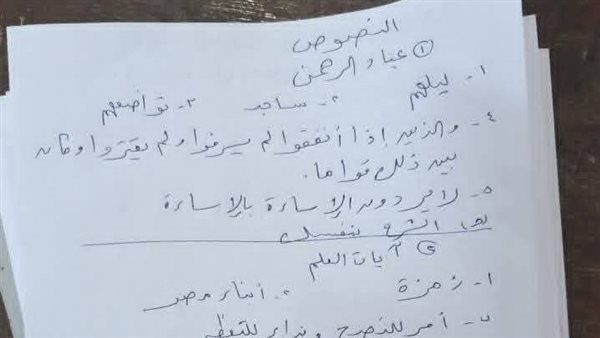 النصوص
① عباد الرحمن
١- ليلهم ٢- ساجد ٣- تواضعهم
٤- والذين إذا أنفقوا لم يسرفوا ولم يقتروا وكان
بين ذلك قواما.
٥- لا يردون الإساءة بالإساءة
بنفسك
② آيات العلم
١- زمزة ٢- أبناء مصر
٣- أمر للنصح ونداء للتعظيم